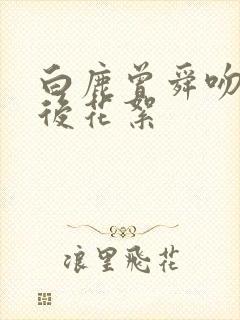 白鹿曾舜吻
後花絮
浪里飛花